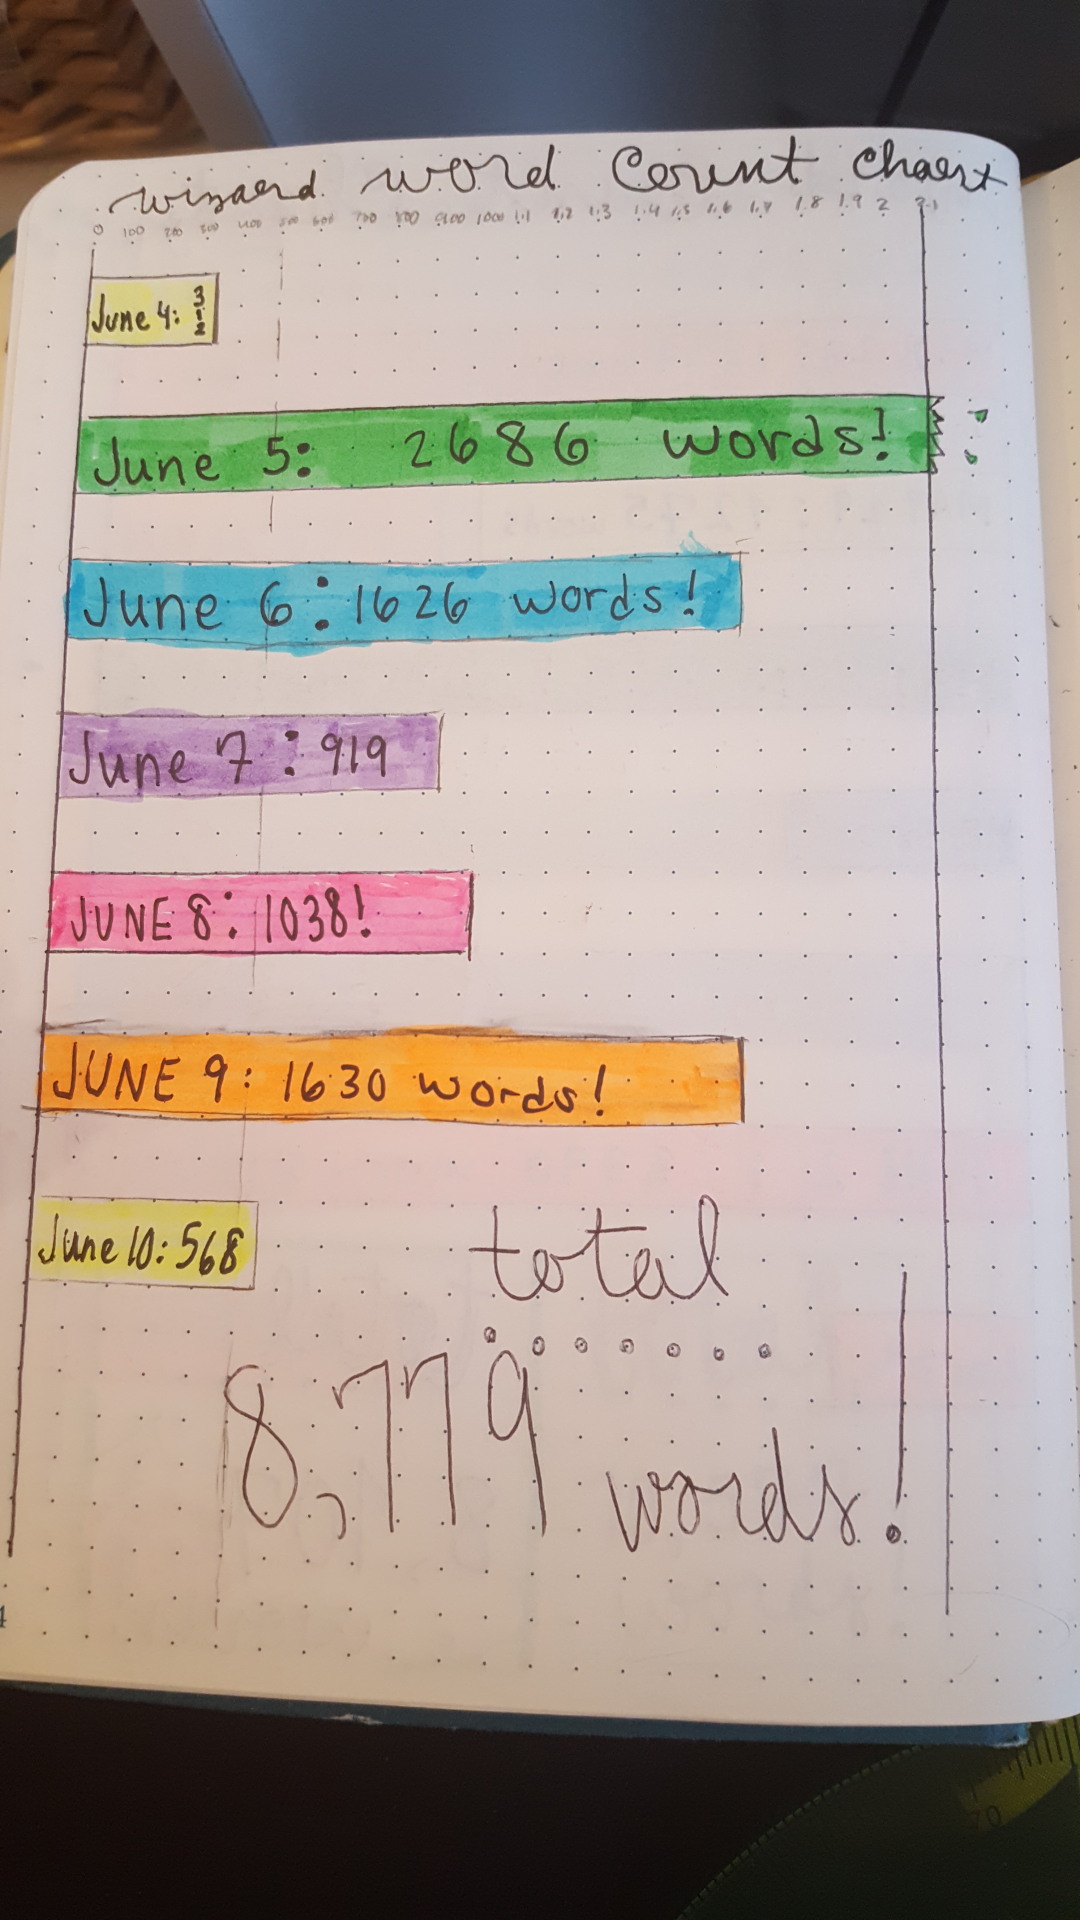 wizard word count chart
0 100 200 300 400 500 600 700 800 900 1000 1.1 1.2 1.3 1.4 1.5 1.6 1.7 1.8 1.9 2 2.1
June 4: 312
June 5: 2686 words!
June 6: 1626 words!
June 7: 919
JUNE 8: 1038!
JUNE 9: 1630 words!
June 10: 568
total
8,779
words!